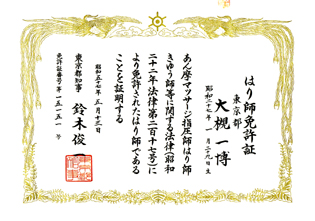 はり師免許証
東京都
大槻一博
昭和二十七年一月二十九日生
あん摩マツサージ指圧師はり師
きゆう師等に関する法律(昭和
二十二年法律第二百十七号)に
より免許されたはり師である
ことを証明する
昭和五十七年五月十三日
東京都知事
鈴木俊一